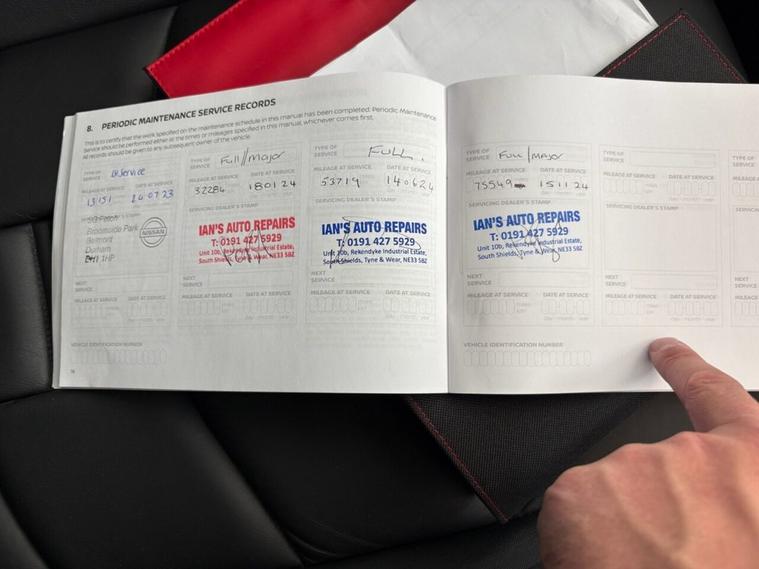 8. PERIODIC MAINTENANCE SERVICE RECORDS
This is to certify that the work specified on the maintenance schedule in this manual has been completed. Periodic Maintenance
Service should be performed either at the times or mileages specified in this manual, whichever comes first.
All records should be given to any subsequent owner of the vehicle.
TYPE OF SERVICE
Service
MILEAGE AT SERVICE DATE AT SERVICE
240723
SERVICING DEALER'S STAMP
Broomside Park
Belmont
Durham
1HP
NISSAN
NEXT SERVICE
MILEAGE AT SERVICE DATE AT SERVICE
VEHICLE IDENTIFICATION NUMBER
TYPE OF SERVICE Full/Major
MILEAGE AT SERVICE DATE AT SERVICE
32284 180124
SERVICING DEALER'S STAMP
IAN'S AUTO REPAIRS
T: 0191 427 5929
Unit 10b, Rekendyke Industrial Estate,
South Shields, Tyne & Wear, NE33 5BZ
NEXT SERVICE
MILEAGE AT SERVICE DATE AT SERVICE
TYPE OF SERVICE FULL.
MILEAGE AT SERVICE DATE AT SERVICE
53719 140624
SERVICING DEALER'S STAMP
IAN'S AUTO REPAIRS
T: 0191 427 5929
Unit 10b, Rekendyke Industrial Estate,
South Shields, Tyne & Wear, NE33 5BZ
NEXT SERVICE
MILEAGE AT SERVICE DATE AT SERVICE
TYPE OF SERVICE Full/Major
MILEAGE AT SERVICE DATE AT SERVICE
75549 151124
SERVICING DEALER'S STAMP
IAN'S AUTO REPAIRS
T: 0191 427 5929
Unit 10b, Rekendyke Industrial Estate,
South Shields, Tyne & Wear, NE33 5BZ
NEXT SERVICE
MILEAGE AT SERVICE DATE AT SERVICE
VEHICLE IDENTIFICATION NUMBER
TYPE OF SERVICE
MILEAGE AT SERVICE DATE AT SERVICE
SERVICING DEALER'S STAMP
NEXT SERVICE
MILEAGE AT SERVICE DATE AT SERVICE
TYPE O